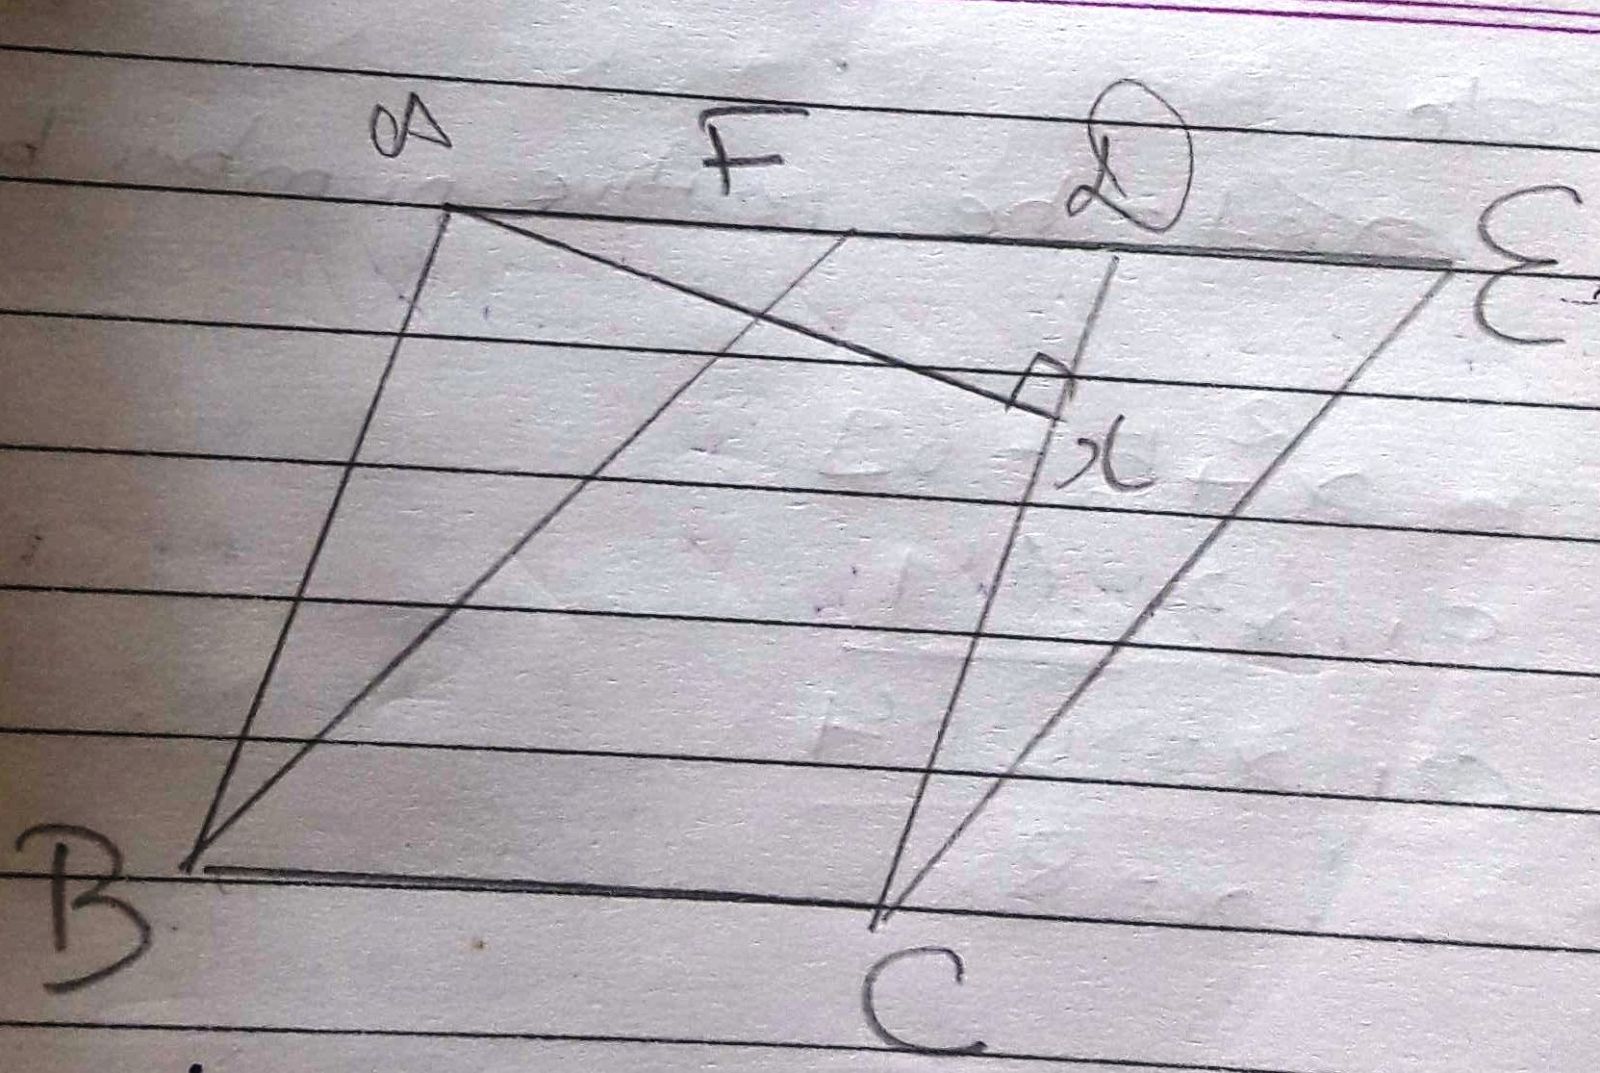 A F D E
x
B
C